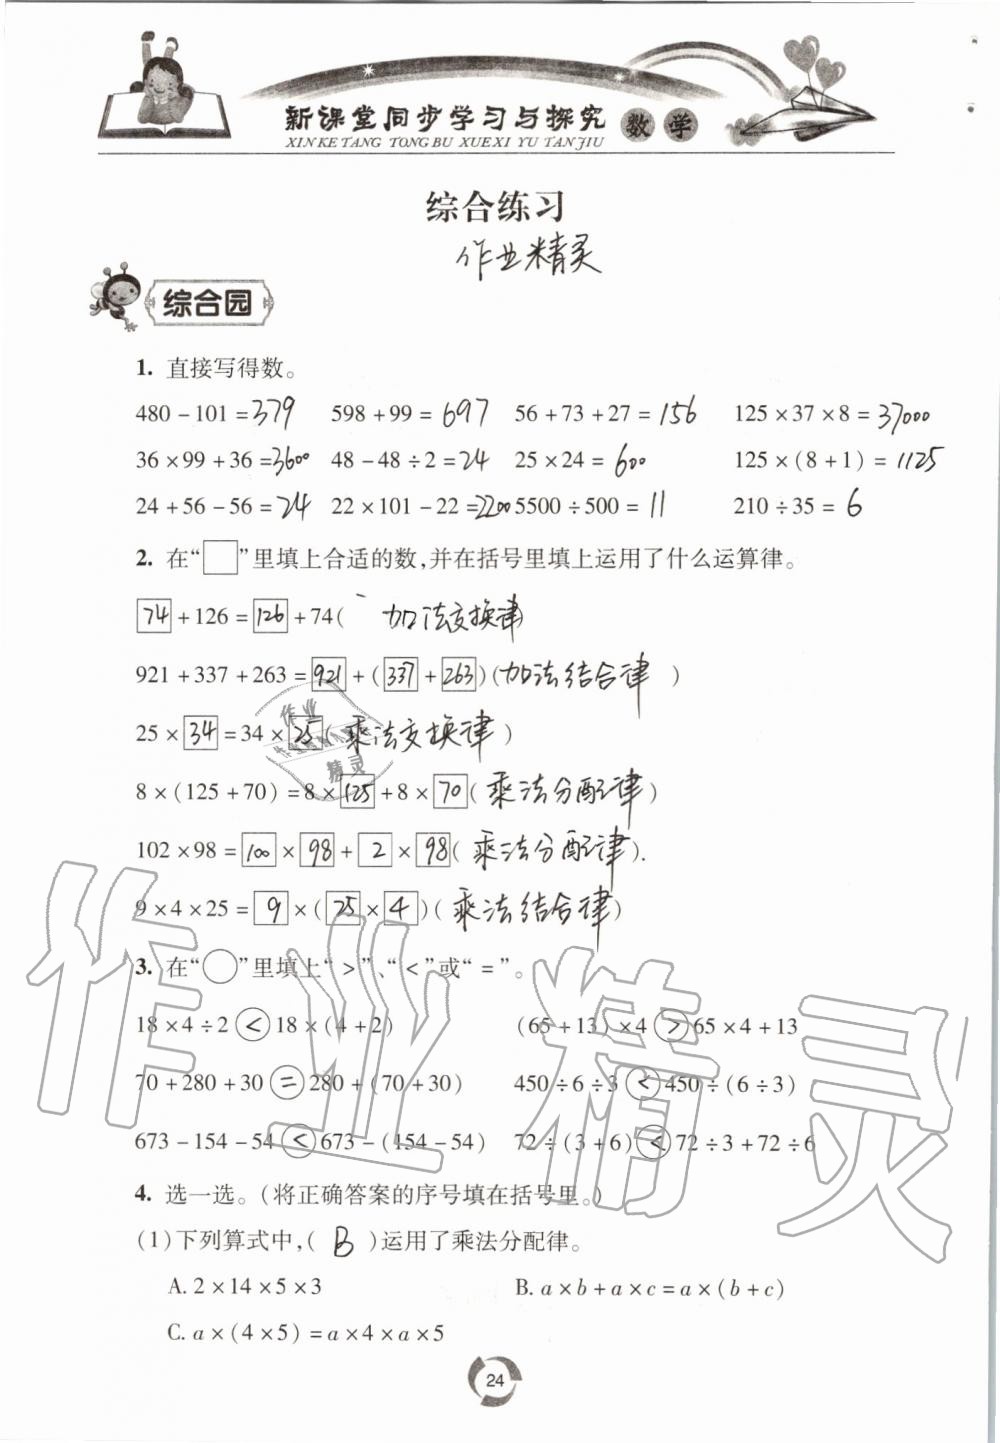 新课堂同步学习与探究 数学
XIN KE TANG TONG BU XUE XI YU TAN JIU
综合练习
作业精灵
综合园
1. 直接写得数。
480-101=379 598+99=697 56+73+27=156 125×37×8=37000
36×99+36=3600 48-48÷2=24 25×24=600 125×(8+1)=1125
24+56-56=24 22×101-22=2200 5500÷500=11 210÷35=6
2. 在“□”里填上合适的数,并在括号里填上运用了什么运算律。
74+126=126+74( 加法交换律
921+337+263=921+(337+263)(加法结合律 )
25×34=34×25(乘法交换律)
8×(125+70)=8×125+8×70(乘法分配律)
102×98=100×98+2×98(乘法分配律).
9×4×25=9×(25×4)(乘法结合律)
3. 在“○”里填上“>”、“<”或“=”。
18×4÷2<18×(4+2) (65+13)×4>65×4+13
70+280+30=280+(70+30) 450÷6÷3<450÷(6÷3)
673-154-54<673-(154-54) 72÷(3+6)<72÷3+72÷6
4. 选一选。(将正确答案的序号填在括号里。)
(1)下列算式中,( B )运用了乘法分配律。
A. 2×14×5×3 B. a×b+a×c=a×(b+c)
C. a×(4×5)=a×4×a×5
24
作业精灵
作业
精灵